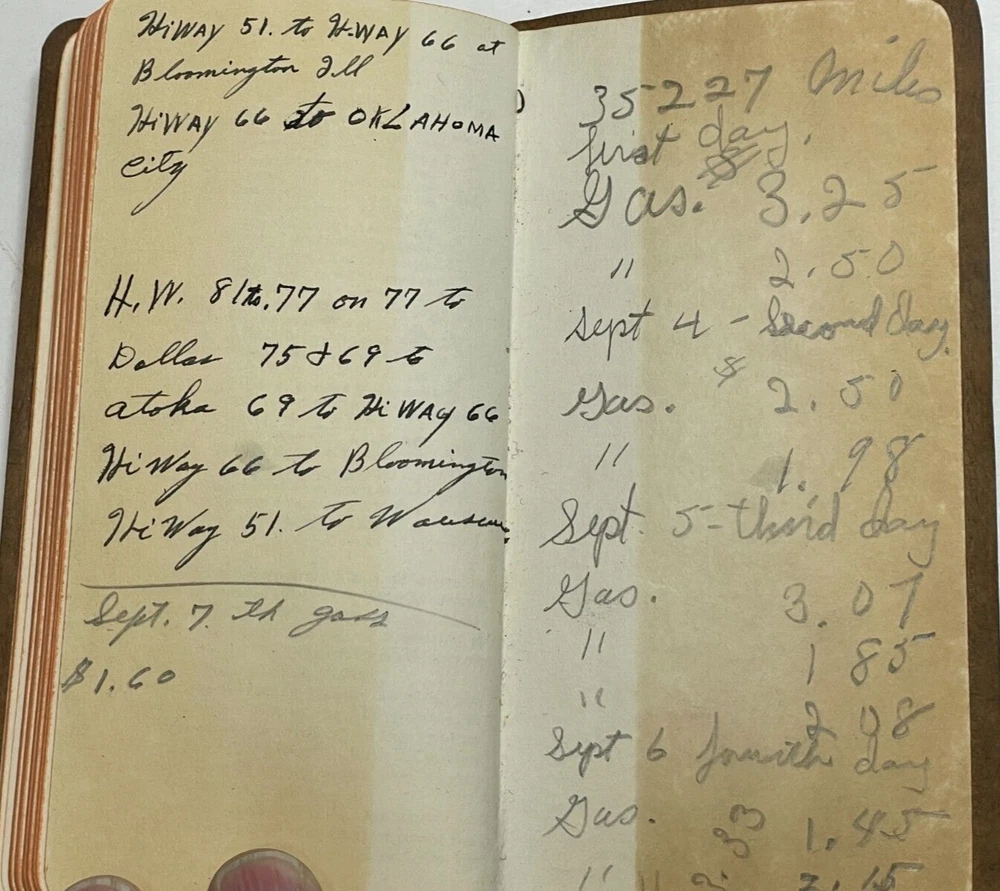 HiWAY 51. to H-WAY 66 at
Bloomington Ill
HiWAY 66 to OKLAHOMA
City
H.W. 81 to. 77 on 77 to
Dallas 75 & 69 to
atoka 69 to HiWAY 66
HiWay 66 to Bloomington
HiWay 51. to Wausau
Sept. 7. th gass
$1.60
35227 Miles
first day.
Gas. $ 3.25
" 2.50
Sept 4 - Second day.
Gas. $ 2.50
" 1.98
Sept. 5 - third day
Gas. 3.07
" 1 85
" 2 08
Sept 6 fourth day
Gas. 1.45
" 15